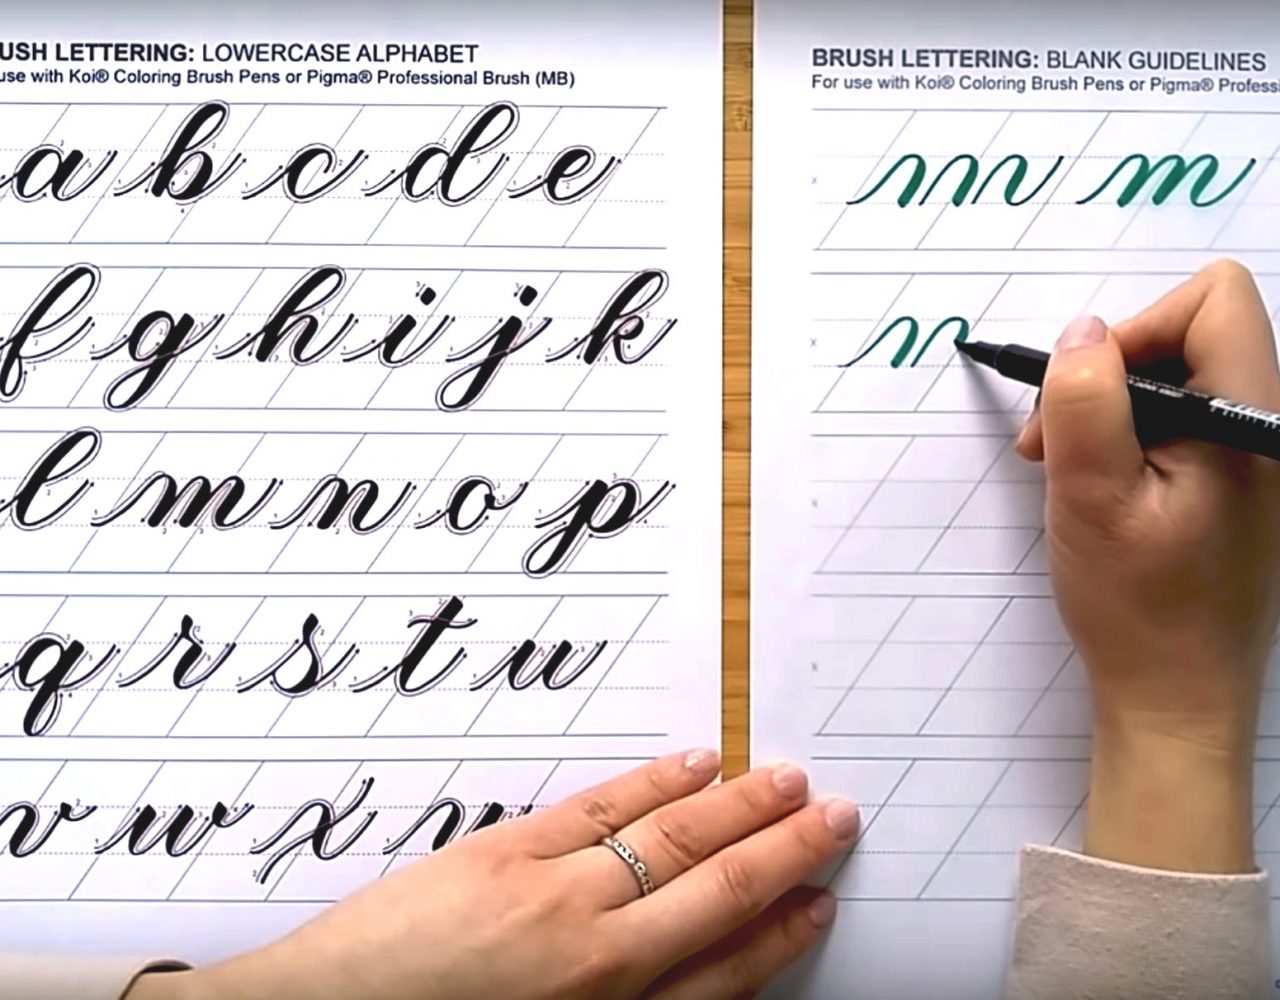 USH LETTERING: LOWERCASE ALPHABET
use with Koi® Coloring Brush Pens or Pigma® Professional Brush (MB)
a b c d e
f g h i j k
l m n o p
q r s t u
v w x
BRUSH LETTERING: BLANK GUIDELINES
For use with Koi® Coloring Brush Pens or Pigma® Profess
x
m
x
x
x